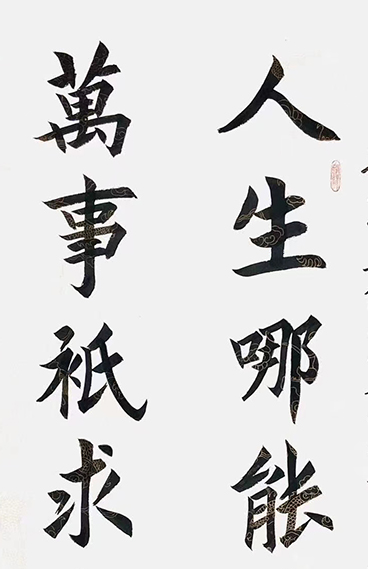 人生哪能
萬事祇求